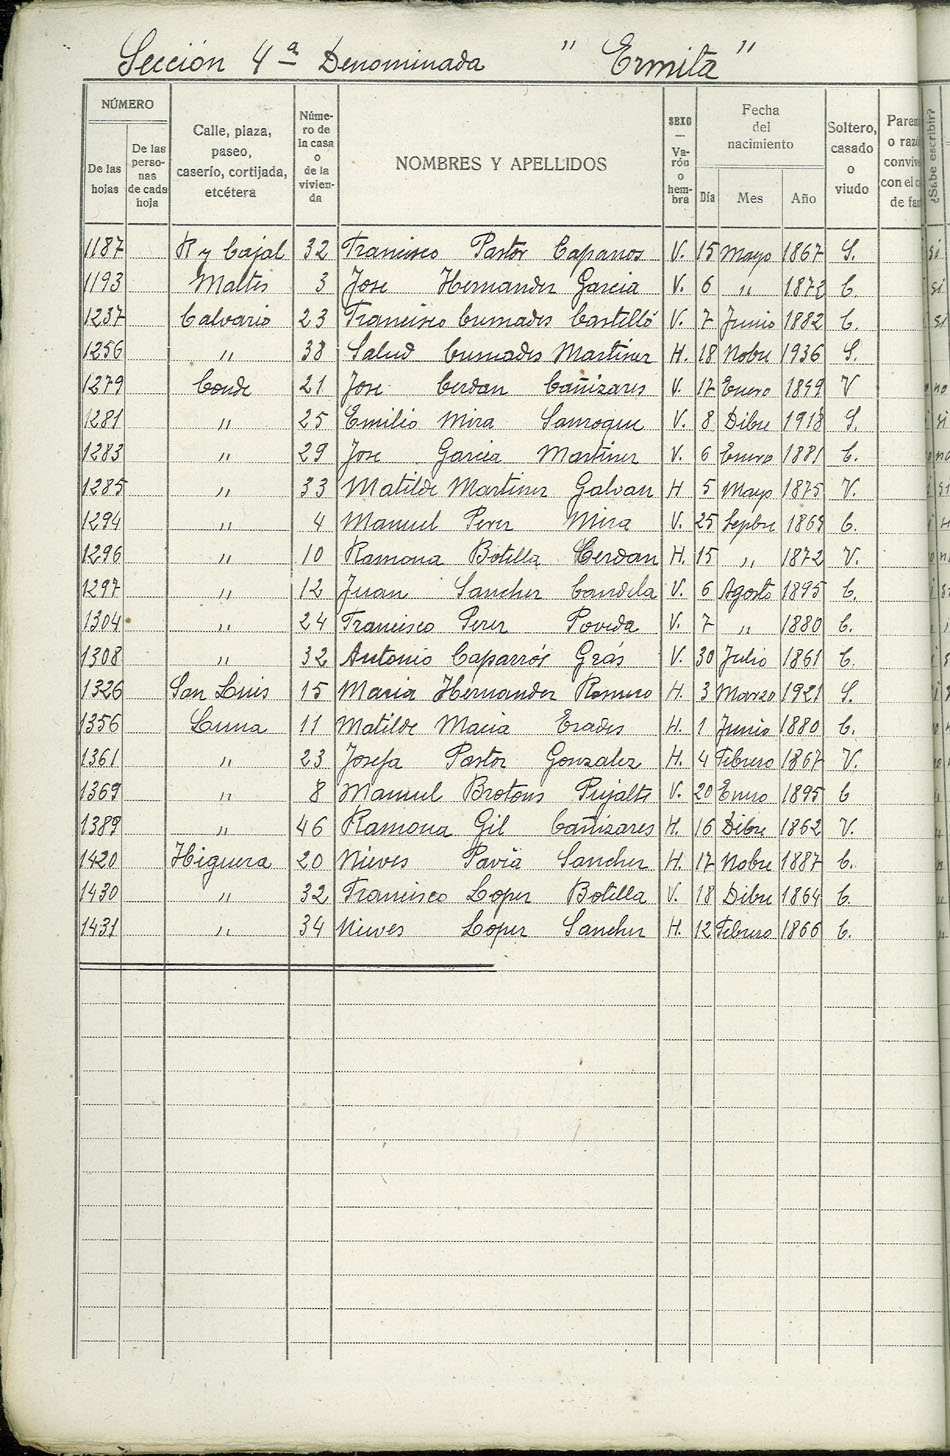 Sección 4ª Denominada " Ermita "
NÚMERO
De las hojas
De las personas de cada hoja
Calle, plaza, paseo, caserío, cortijada, etcétera
Número de la casa o de la vivienda
NOMBRES Y APELLIDOS
SEXO — Varón o hembra
Fecha del nacimiento
Día Mes Año
Soltero, casado o viudo
¿Sabe escribir?
1187 R y Cajal 32 Francisco Pastor Caparros V. 15 Mayo 1867 S. si
1193 Maltes 3 Jose Hernandez Garcia V. 6 " 1872 C. si
1237 Calvario 23 Francisco Cremades Castelló V. 7 Junio 1882 C. si
1256 " 38 Salud Cremades Martinez H. 18 Nobre 1936 S.
1279 Conde 21 Jose Cerdan Cañizares V. 17 Enero 1899 V no
1281 " 25 Emilio Mira Sanroque V. 8 Dibre 1918 S. si
1283 " 29 Jose Garcia Martinez V. 6 Enero 1881 C. no
1285 " 33 Matilde Martinez Galvan H 5 Mayo 1875 V. si
1294 " 4 Manuel Perez Mira V. 25 Sepbre 1869 C.
1296 " 10 Ramona Botella Cerdan H. 15 " 1872 V.
1297 " 12 Juan Sanchez Candela V. 6 Agosto 1895 C.
1304 " 24 Francisco Perez Poveda V. 7 " 1880 C.
1308 " 32 Antonio Caparrós Grás V. 30 Julio 1861 C.
1326 San Luis 15 Maria Hernandez Romero H. 3 Marzo 1921 S.
1356 Luna 11 Matilde Macia Erades H. 1 Junio 1880 C.
1361 " 23 Josefa Pastor Gonzalez H. 4 Febrero 1867 V.
1369 " 8 Manuel Brotons Pujalte V. 20 Enero 1895 C
1389 " 46 Ramona Gil Cañizares H. 16 Dibre 1862 V.
1420 Higuera 20 Nieves Pavia Sanchez H. 17 Nobre 1887 C.
1430 " 32 Francisco Lopez Botella V. 18 Dibre 1864 C.
1431 " 34 Nieves Lopez Sanchez H. 12 Febrero 1866 C.